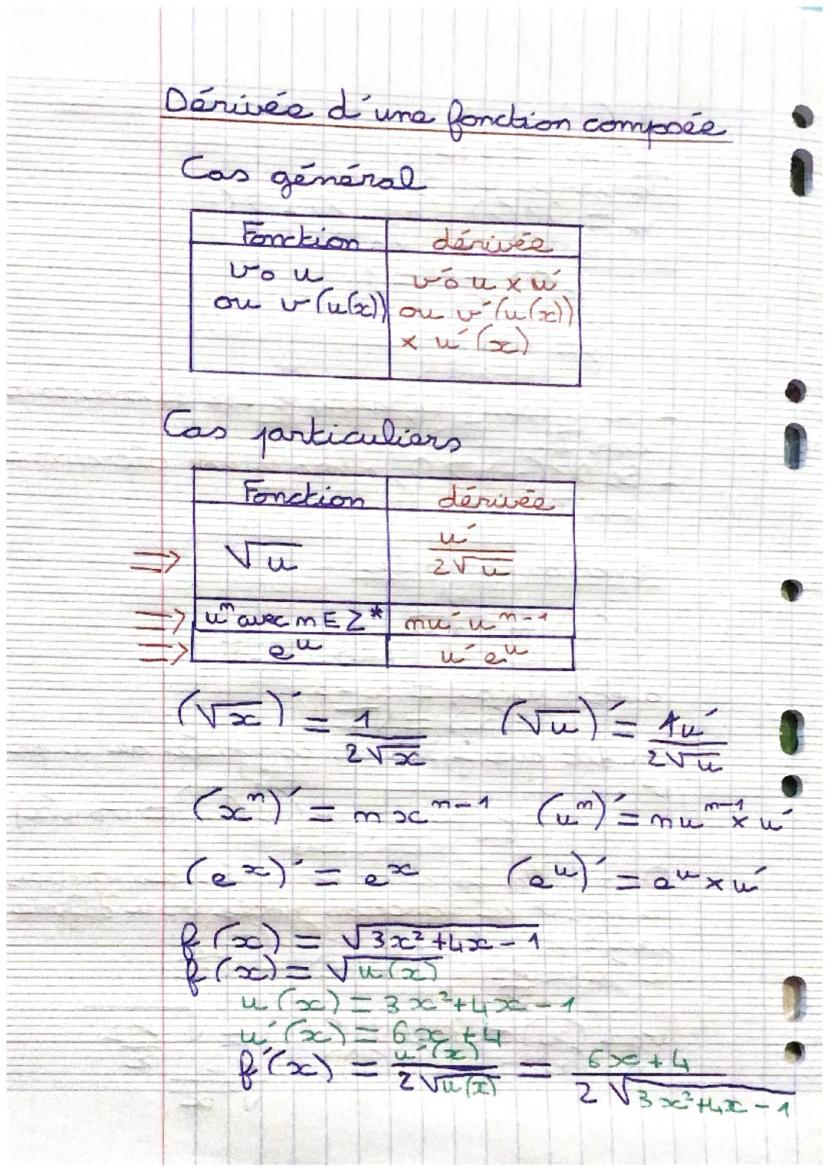 Dérivée d'une fonction composée
Cas général
Fonction dérivée
v∘u v'∘u × u'
ou v(u(x)) ou v'(u(x))
× u'(x)
Cas particuliers
Fonction dérivée
⇒ √u u'/(2√u)
⇒ uⁿ avec n ∈ Z* nu'uⁿ⁻¹
⇒ eᵘ u'eᵘ
(√x)' = 1/(2√x) (√u)' = 1u'/(2√u)
(xⁿ)' = nxⁿ⁻¹ (uⁿ)' = nuⁿ⁻¹ × u'
(eˣ)' = eˣ (eᵘ)' = eᵘ × u'
f(x) = √(3x²+4x-1)
f(x) = √(u(x))
u(x) = 3x²+4x-1
u'(x) = 6x+4
f'(x) = u'(x)/(2√(u(x))) = (6x+4)/(2√(3x²+4x-1))